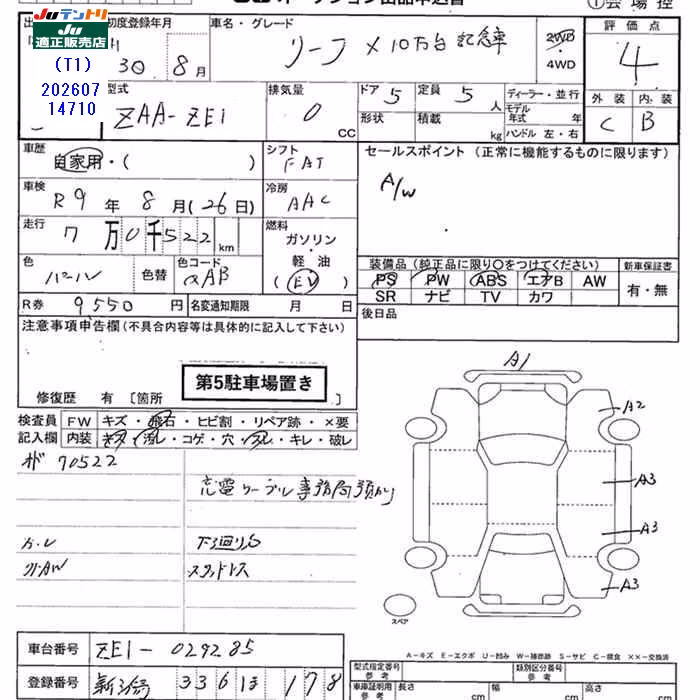 JUテントリ
JU
適正販売店
(T1)
202607
14710
オークション出品申込書
①会場控
初度登録年月
30年 8月
車名・グレード
リーフ X 10万台記念車
2WD・4WD
評価点
4
外装 内装
C B
型式
ZAA-ZE1
排気量
0 CC
ドア 5
定員 5 人
形状
積載 kg
ディーラー・並行
モデル年式 年
ハンドル 左・右
車歴
自家用・( )
シフト
FAT
車検
R9年 8月(26日)
冷房
AAC
走行
7万0千522 km
燃料
ガソリン・軽油
(EV)
色
パール
色替
色コード
QAB
R券 9550円
名変通知期限 月 日
セールスポイント (正常に機能するものに限ります)
A/W
装備品 (純正品に限り○をつけてください)
新車保証書
PS PW ABS エアB AW
有・無
SR ナビ TV カワ
後日品
注意事項申告欄 (不具合内容等は具体的に記入して下さい)
第5駐車場置き
修復歴 有 [箇所
検査員記入欄
FW キズ・飛石・ヒビ割・リペア跡・×要
内装 キズ・汚レ・コゲ・穴・スレ・キレ・破レ
メガ 70522
充電ケーブル事務局預かり
下廻りサビ
スタッドレス
A1
A2
A3
A3
A3
スペア
A-キズ E-エクボ U-凹み W-補修跡 S-サビ C-腐食 ××-交換済
車台番号 ZE1-029285
登録番号 新潟 336 は 178
型式指定番号 参考
類別区分番号 参考
車庫証明用 参考
長さ cm
幅 cm
高さ cm